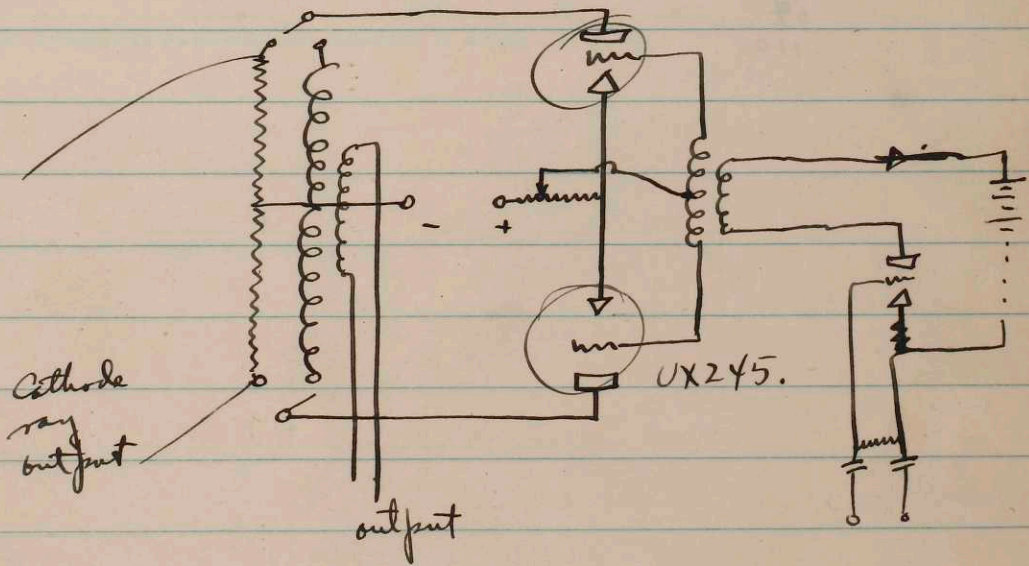 - +
UX245.
Cathode
ray
output
output